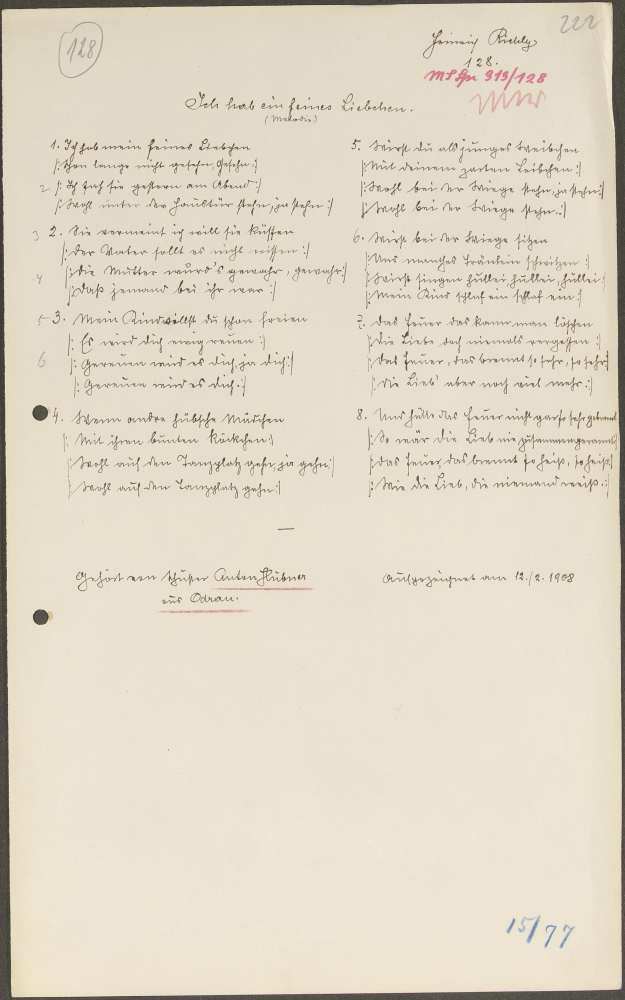 128
222
Heinrich
128.
MS Gr 313/128
Ich hab ein feines Liebchen.
(Melodie)
1. Ich hab mein feines Liebchen
/: Schon lange nicht gesehn, Gesehn :/
2 /: Ich sah sie gestern am Abend :/
/: Wohl unter der Haustür stehn, ja stehn :/
3 2. Sie vermeint ich will sie küssen
/: Der Vater sollt es nicht wissen :/
4 /: Die Mutter wurd's gewahr, gewahr :/
/: Daß jemand bei ihr war :/
5 3. Mein Kind willst du schon freien
/: Es wird dich ewig reuen :/
6 /: Gereuen wird es dich, ja dich :/
/: Gereuen wird es dich. :/
4. Wenn andre hübsche Mädchen
/: Mit ihren bunten Röckchen :/
/: Wohl auf den Tanzplatz gehn, ja gehn :/
/: Wohl auf den Tanzplatz gehn :/
5. Wirst du als junges Weibchen
/: Mit deinem zarten Leibchen :/
/: Wohl bei der Wiege stehn, ja stehn :/
/: Wohl bei der Wiege stehn. :/
6. Wirst bei der Wiege sitzen
/: Und manches Tränlein schwitzen :/
/: Wirst singen hullei, hullei, hullei :/
/: Mein Kind schlaf ein schlaf ein :/
7. Das Feuer das kann man löschen
/: Die Liebe doch niemals vergessen :/
/: Das Feuer, das brennt so sehr, so sehr :/
/: Die Lieb' aber noch viel mehr. :/
8. Und hätte das Feuer nicht gar so sehr gebrannt
/: So wär die Lieb nie zusammengerannt :/
/: Das Feuer, das brennt so heiß, so heiß :/
/: Wie die Lieb, die niemand weiß. :/
Gehört von Schuster Anton Hübner
aus Odrau.
Aufgezeichnet am 12./2. 1908
15/77